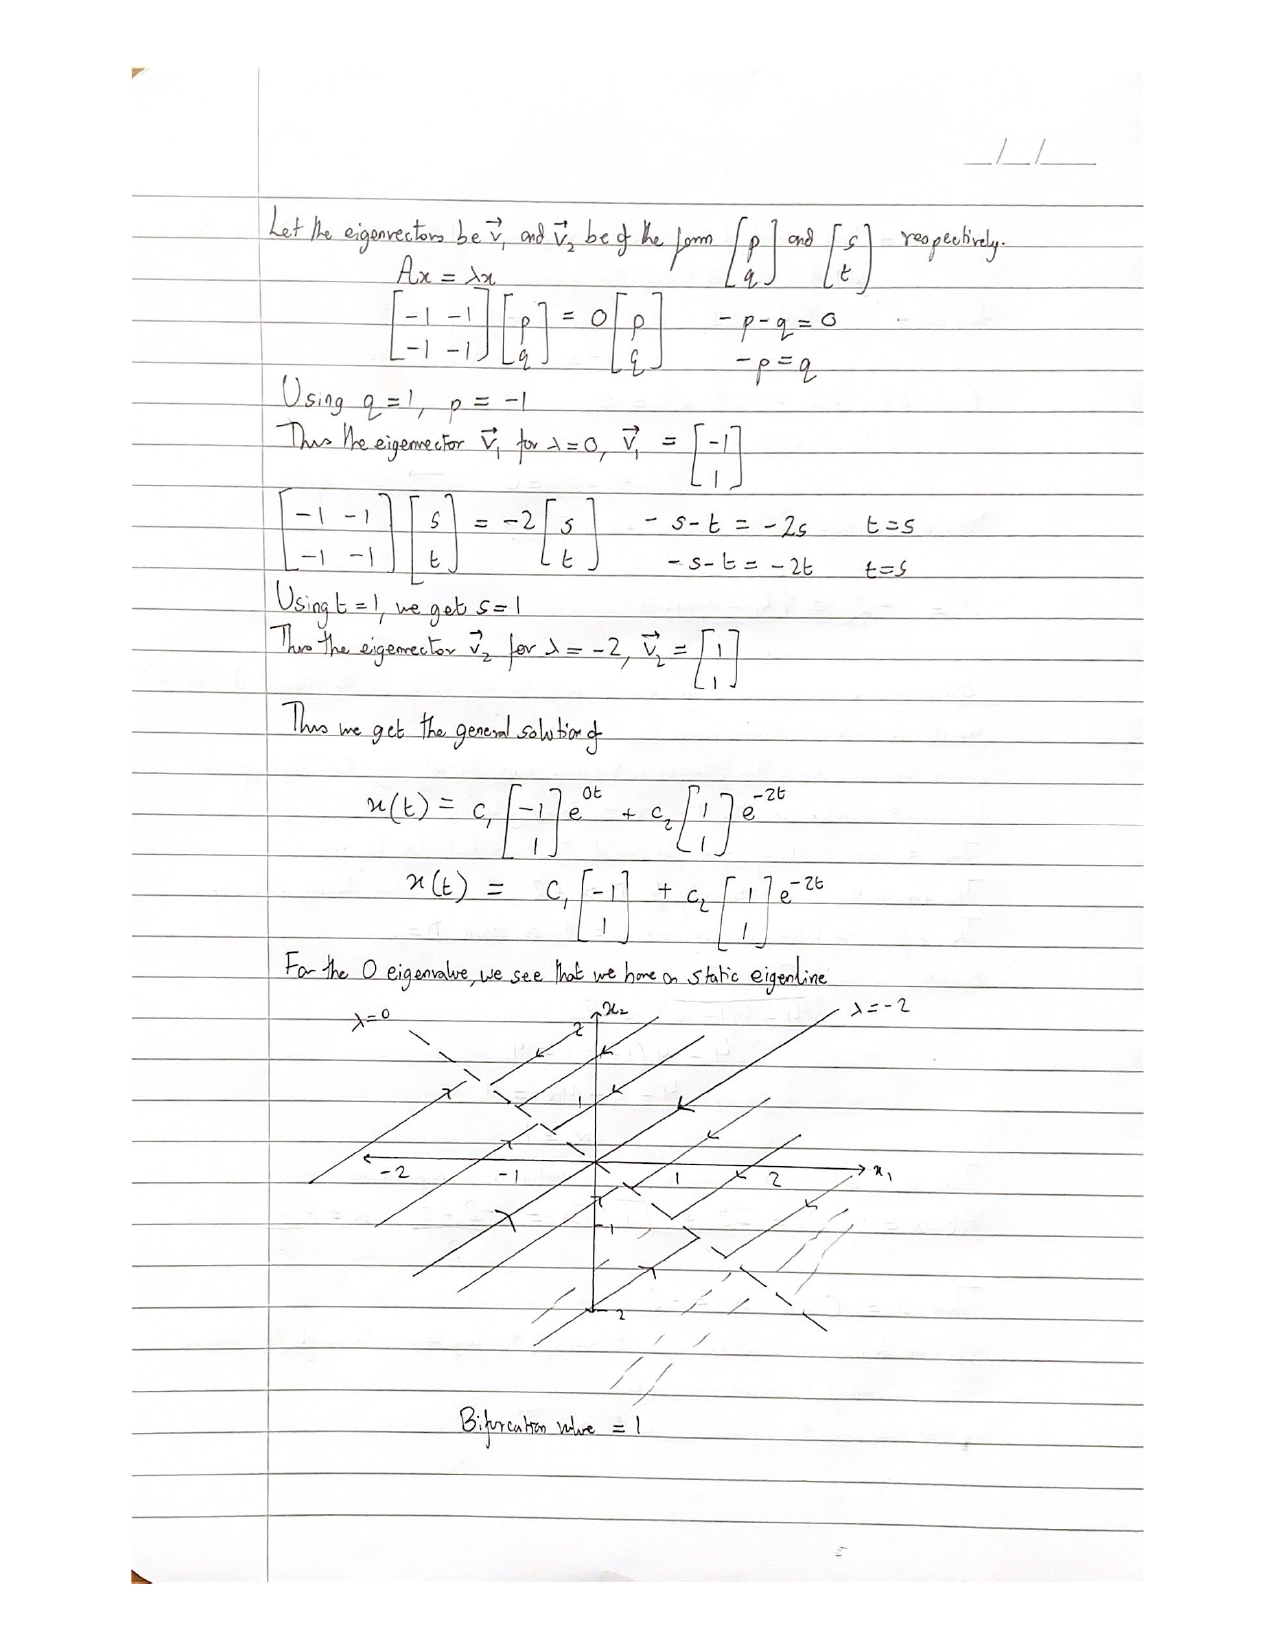 _/_/__
Let the eigenvectors be v⃗₁ and v⃗₂ be of the form [p q] and [s t] respectively.
Ax = λx
[-1 -1; -1 -1] [p; q] = 0 [p; q]   -p-q=0
-p=q
Using q=1, p = -1
Thus the eigenvector v⃗₁ for λ=0, v⃗₁ = [-1; 1]
[-1 -1; -1 -1] [s; t] = -2 [s; t]   -s-t = -2s   t=s
-s-t = -2t   t=s
Using t=1, we get s=1
Thus the eigenvector v⃗₂ for λ=-2, v⃗₂ = [1; 1]
Thus we get the general solution of
x(t) = c₁ [-1; 1] e^0t + c₂ [1; 1] e^-2t
x(t) = c₁ [-1; 1] + c₂ [1; 1] e^-2t
For the 0 eigenvalue, we see that we have a static eigenline
λ=0   x₂   λ=-2
2
1
-2   -1   1   2   x₁
-1
-2
Bifurcation value = 1